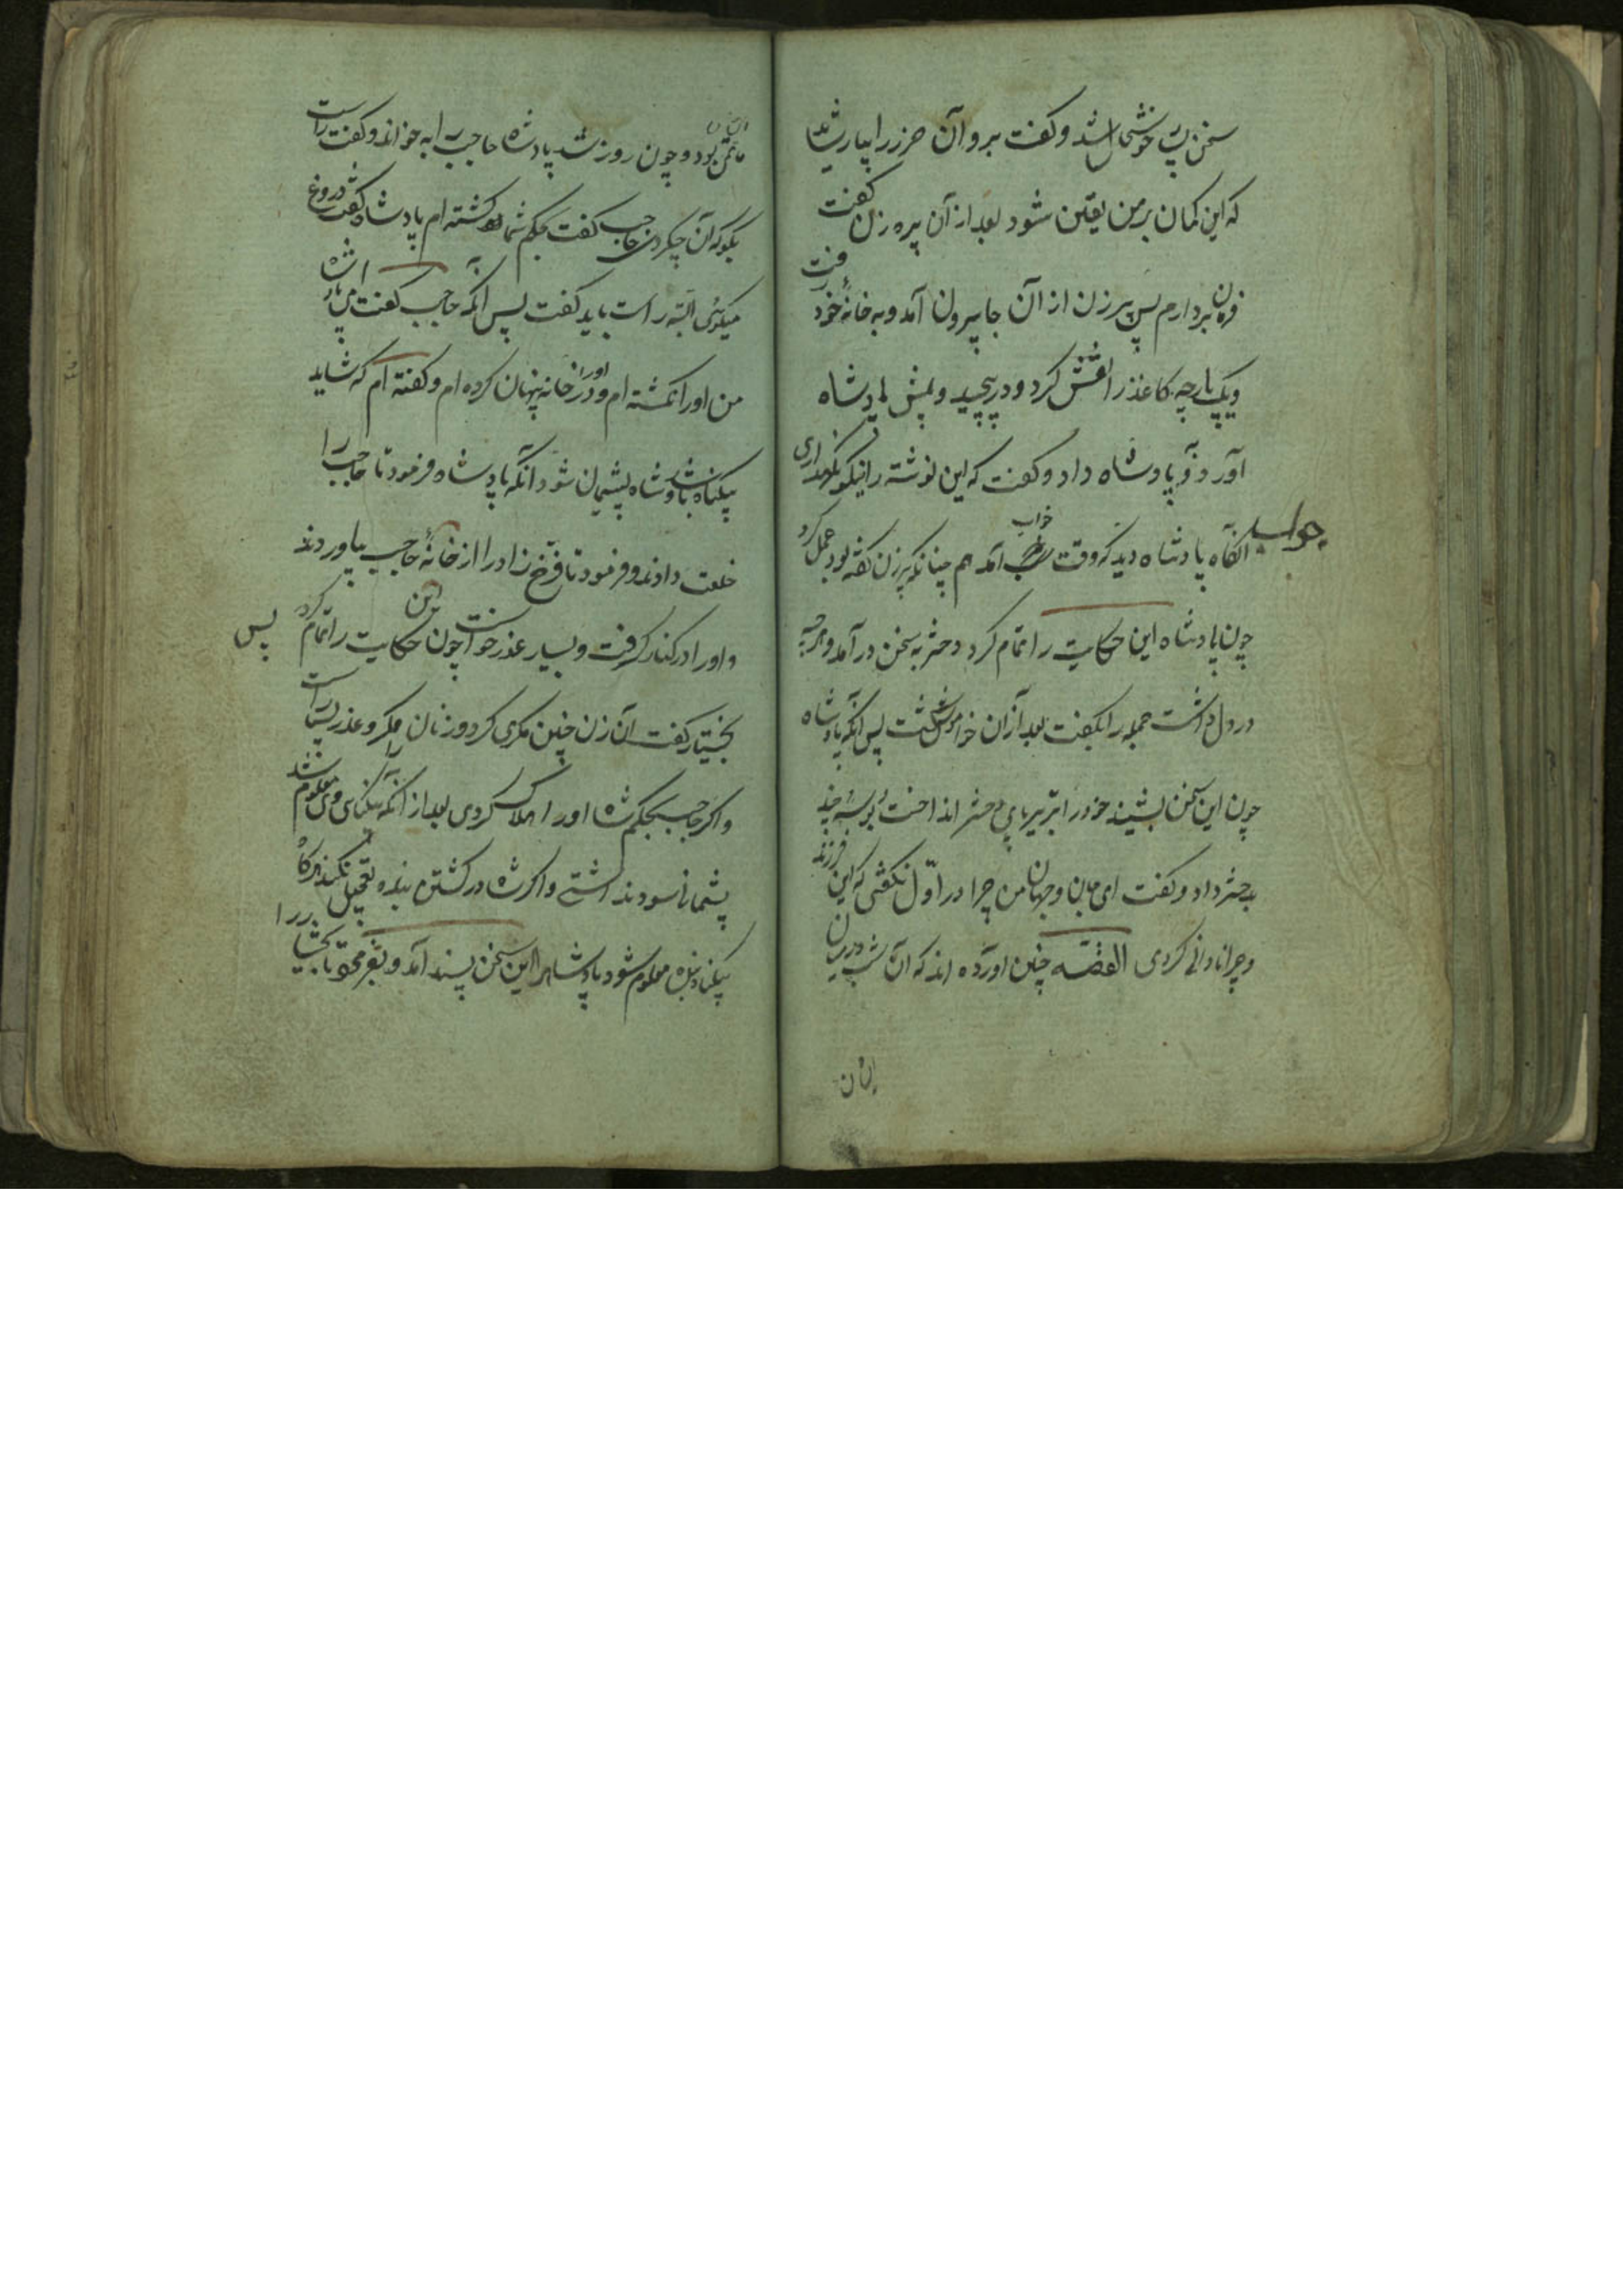 سخن بسی خوشحال شد و گفت برو آن حرز را بیار شاید
که این کمان بر من یقین شود بعد از آن پیره زن گفت
فرمان بردارم پس پیرزن از آن جا بیرون آمد و به خانهٔ خود رفت
و یک پارچه کاغذ را نقش کرد و در پیچید و پیش پادشاه
آورد و بپادشاه داد و گفت که این نوشته را نیکو نگهداری
آنگاه پادشاه دید که وقت خواب آمد هم چنانکه پیرزن گفته بود عمل کرد
خواب
چون پادشاه این حکایت را تمام کرد دختر به سخن در آمد و هرچه
در دل داشت جمله را بگفت بعد از ان خاموش گشت پس آنگه پادشاه
چون این سخن بشنید خود را بر زیر پای دختر انداخت و بوسهٔ چند
بدختر داد و گفت ای جان و جهان من چرا در اوّل نگفتی که این فرزند
و چرا نادانی کردی القصّه چنین آورده اند که آن شب در میان
ایشان
ایشان
ماتمی بود و چون روز شد پادشاه حاجب را به خواند و گفت راست
بگو که آن چکردی حاجب گفت بحکم شما کشته ام پادشاه گفت دروغ
میگوئی البته راست باید گفت پس آنگه حاجب گفت ای پادشاه
من او را نکشته ام و او را در خانه پنهان کرده ام و گفته ام که شاید
بیگناه باشد و شاه پشیمان شود آنگه پادشاه فرمود تا حاجب را
خلعت دادند و فرمود تا فرّخ زاد را از خانهٔ حاجب بیاوردند
و او را در کنار گرفت و بسیار عذر خواست چون این حکایت را تمام کرد پس
بختیار گفت آن زن چنین مکری کرد و زنان را مکر و عذر بسیار است
و اگر حاجب بحکم شاه او را هلاک کردی بعد از آنکه بیگناهی وی معلوم شد
پشیمانی سود نداشتی و اگر شاه در کشتن بنده تعجیل نکند هرگاه
بیگناهی بنده معلوم شود پادشاه را این سخن پسند آمد و بفرمود تا بختیار را